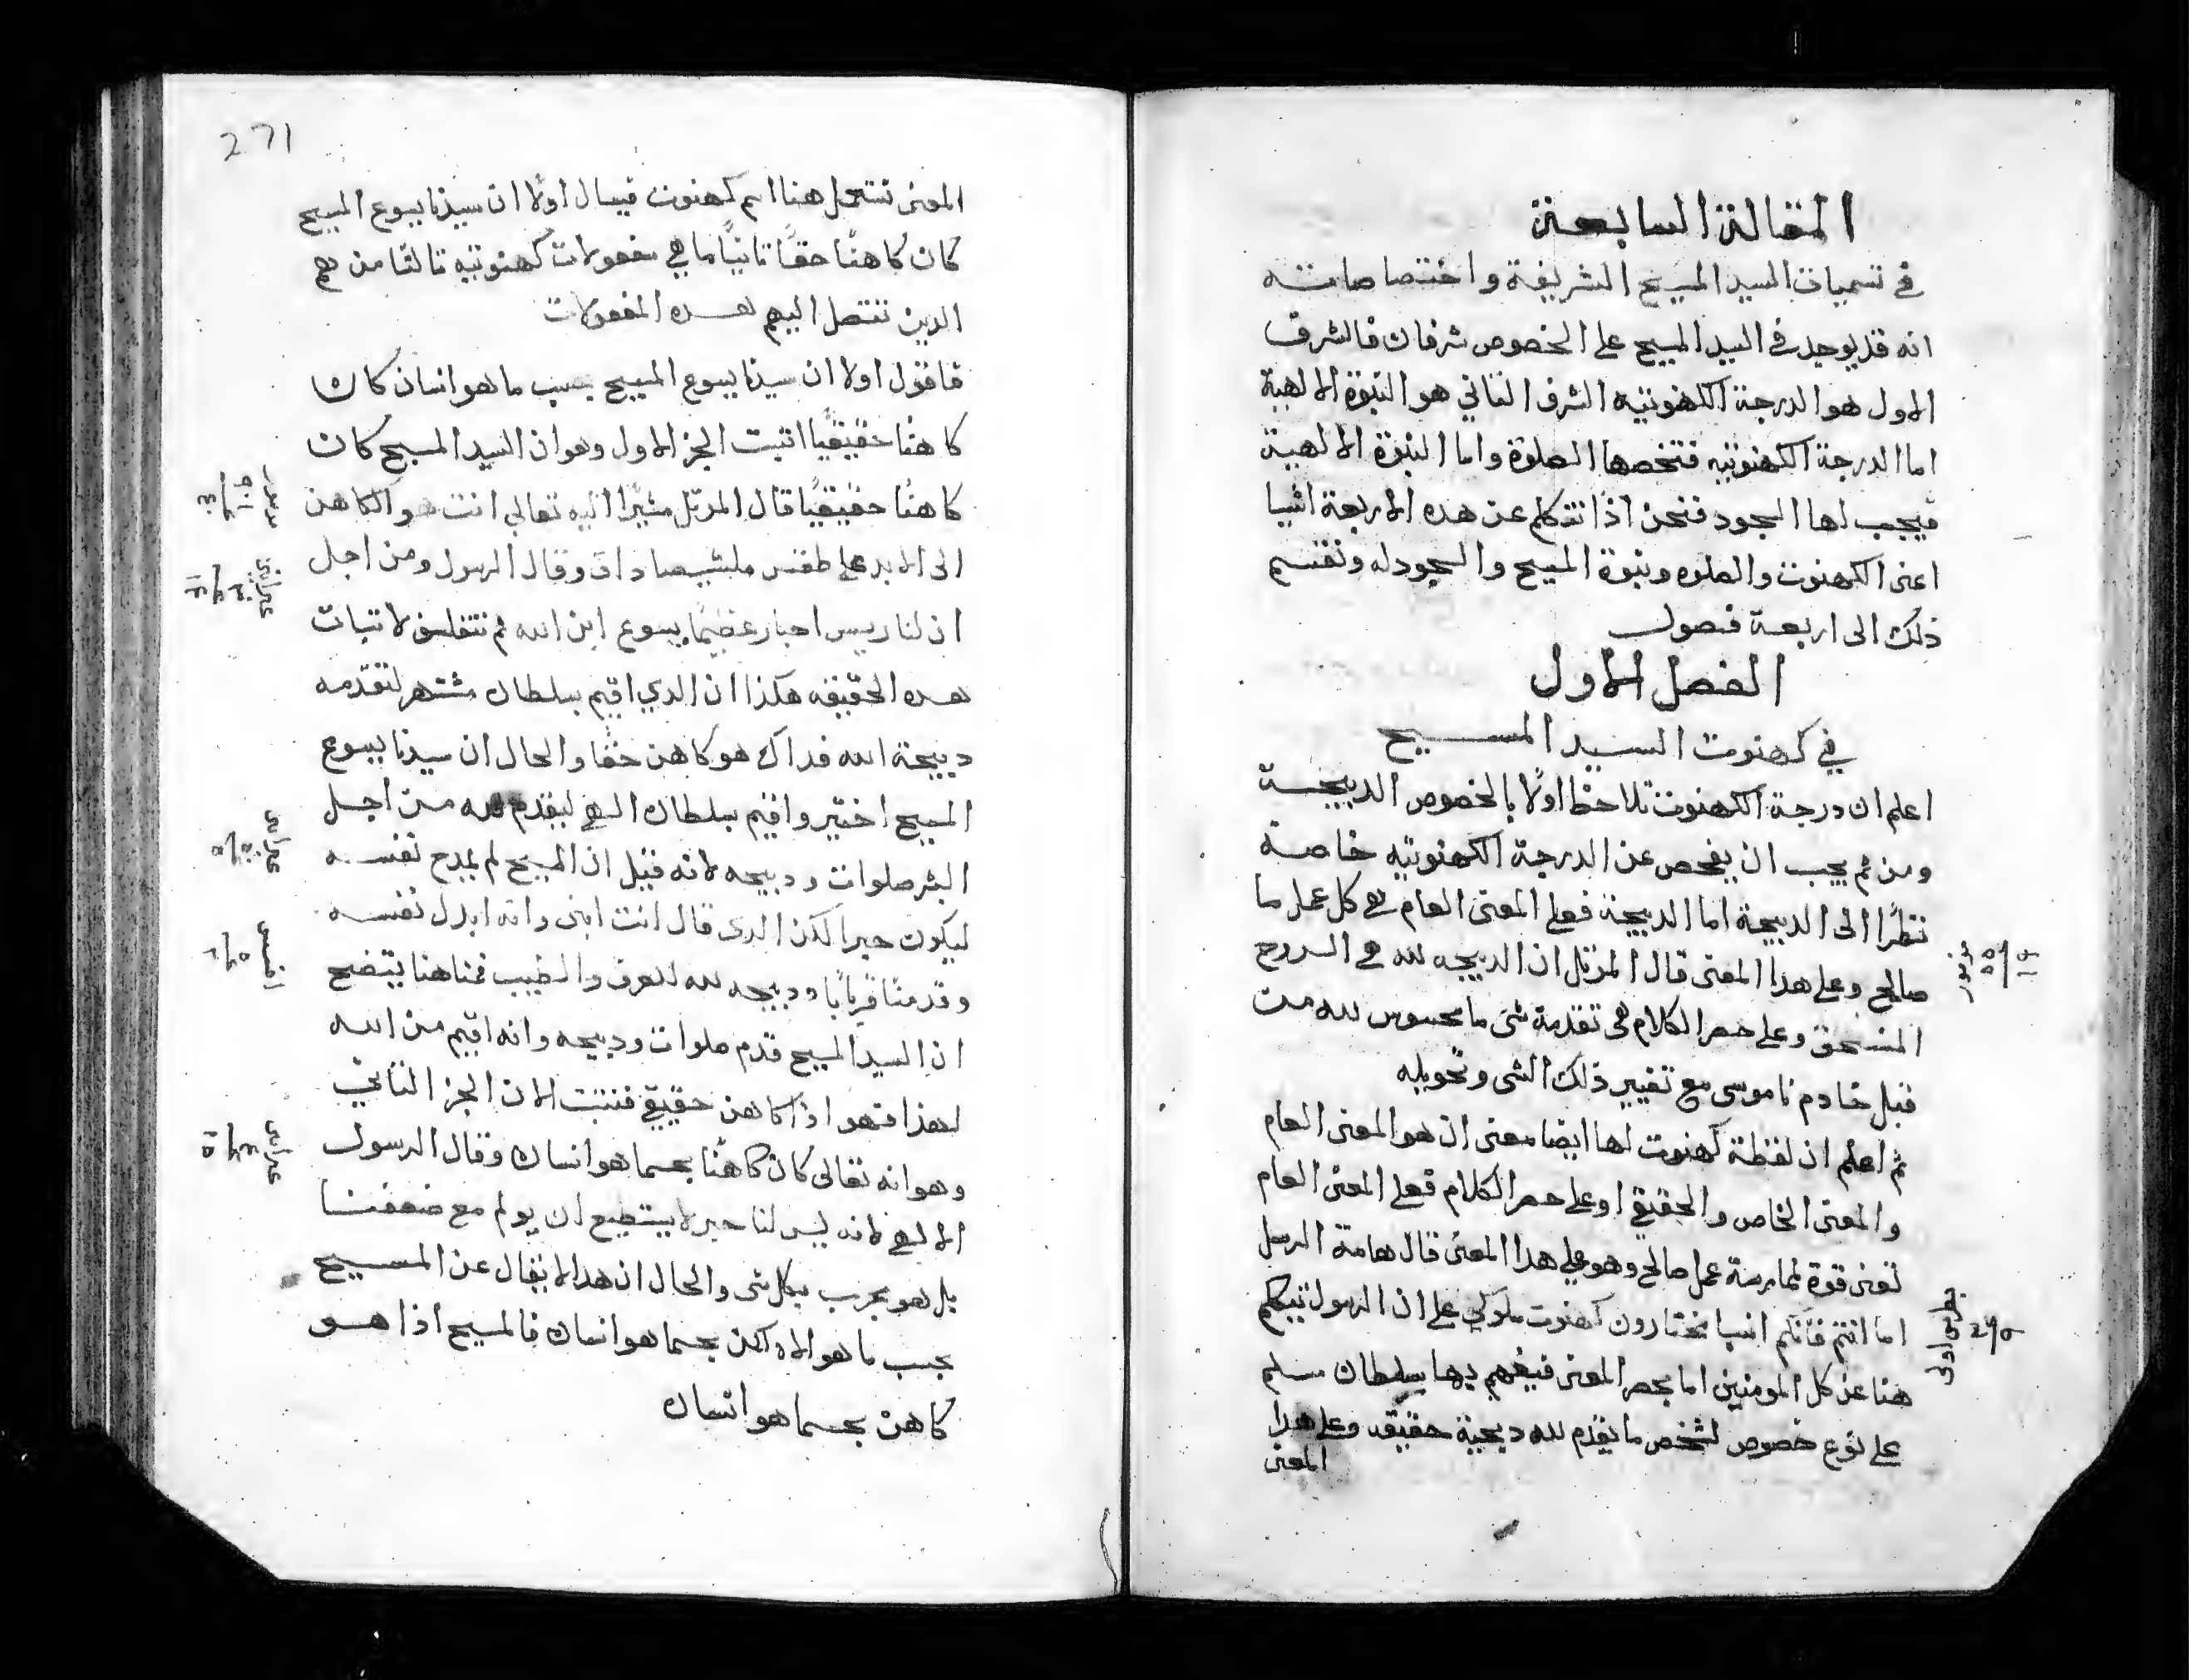 المقالة السابعة
في تسميات السيد المسيح الشريفة واختصاصاته
انه قد يوجد في السيد المسيح علي الخصوص شرفان فالشرف
الاول هو الدرجة الكهنوتيه الشرف الثاني هو البنوة الالهية
اما الدرجة الكهنوتيه فتخصها الصلوة واما البنوة الالهية
فيجب لها السجود فنحن اذًا نتكلم عن هده الاربعة اشيا
اعنى الكهنوت والصلوه وبنوة المسيح والسجود له ونقسم
ذلك الى اربعة فصول
الفصل الاول
في كهنوت السيد المسيح
اعلم ان درجة الكهنوت تلاحظ اولًا بالخصوص الدبيحة
ومن ثم يجب ان يفحص عن الدرجة الكهنوتيه خاصة
نظرًا الى الدبيحة اما الدبيحة فعلي المعنى العام هي كل عمل ما
صالح وعلي هدا المعنى قال المرتل ان الدبيحه لله هي الروح
المنسحق وعلي حصر الكلام هي تقدمة شى ما محسوس لله من
قبل خادم ناموسى مع تغيير ذلك الشى وتحويله
مزبور
٥٠
١٩
ثم اعلم ان لفظة كهنوت لها ايضا معنى ان هو المعنى العام
والمعنى الخاص والحقيقي او علي حصر الكلام فعلي المعنى العام
تعنى قوة لممارسة عمل صالح وهو علي هدا المعنى قال هامة الرسل
اما انتم فانكم انسبا مختارون كهنوت ملوكي علي ان الرسول تيكلم
بطرس اولى
هنا عن كل المومنين اما بحصر المعنى فيفهم بها سلطان مسلم
علي نوع خصوص لشخص ما يقدم لله دبيحة حقيقه وعلي هدا
المعنى
271
المعنى نستعمل هنا اسم كهنوت فيسال اولًا ان سيدنا يسوع المسيح
كان كاهنًا حقًا ثانيًا ما هي مفعولات كهنوتيه ثالثًا من هم
الدين تتصل اليهم هده المفعولات
فاقول اولا ان سيدنا يسوع المسيح بحسب ما هو انسان كان
كاهنًا حقيقيًا اثبت الجز الاول وهو ان السيد المسيح كان
كاهنًا حقيقيًا قال المرتل مشيرًا اليه تعالي انت هو الكاهن
الى الابد علي طقس ملشيصاداق وقال الرسول ومن اجل
ان لنا ريس احبار عظيمًا يسوع ابن الله ثم نتفلسف لاثبات
هده الحقيقه هكذا ان الدي اقيم بسلطان مشتهر لتقدمه
دبيحة الله فداك هو كاهن حقًا والحال ان سيدنا يسوع
المسيح اختير واقيم بسلطان الهي ليقدم لله من اجل
البشر صلوات ودبيحه لانه قيل ان المسيح لم يمدح نفسه
ليكون حبرا لكن الدى قال انت ابنى وانه ابدل نفسه
وقدمنا قربانًا ودبيحه لله للعرف والطيب فمن هنا يتضح
ان السيد المسيح قدم صلوات ودبيحه وانه اقيم من الله
لهذا فهو اذًا كاهن حقيقي فنثبت الان الجز الثاني
وهو انه تعالى كان كاهنًا بحسما هو انسان وقال الرسول
الالهي لانه ليس لنا حبر لا يستطيع ان يولم مع ضعفنا
بل هو مجرب بكل شى والحال ان هدا لا يقال عن المسيح
بحسب ما هو الاه لكن بحسما هو انسان فالمسيح اذا هو
كاهن بحسما هو انسان
مزمور
عبرانين
٤
١٤
عبرانين
٥
٥
افسس
٥
٢
عبرانين
٤
١٥